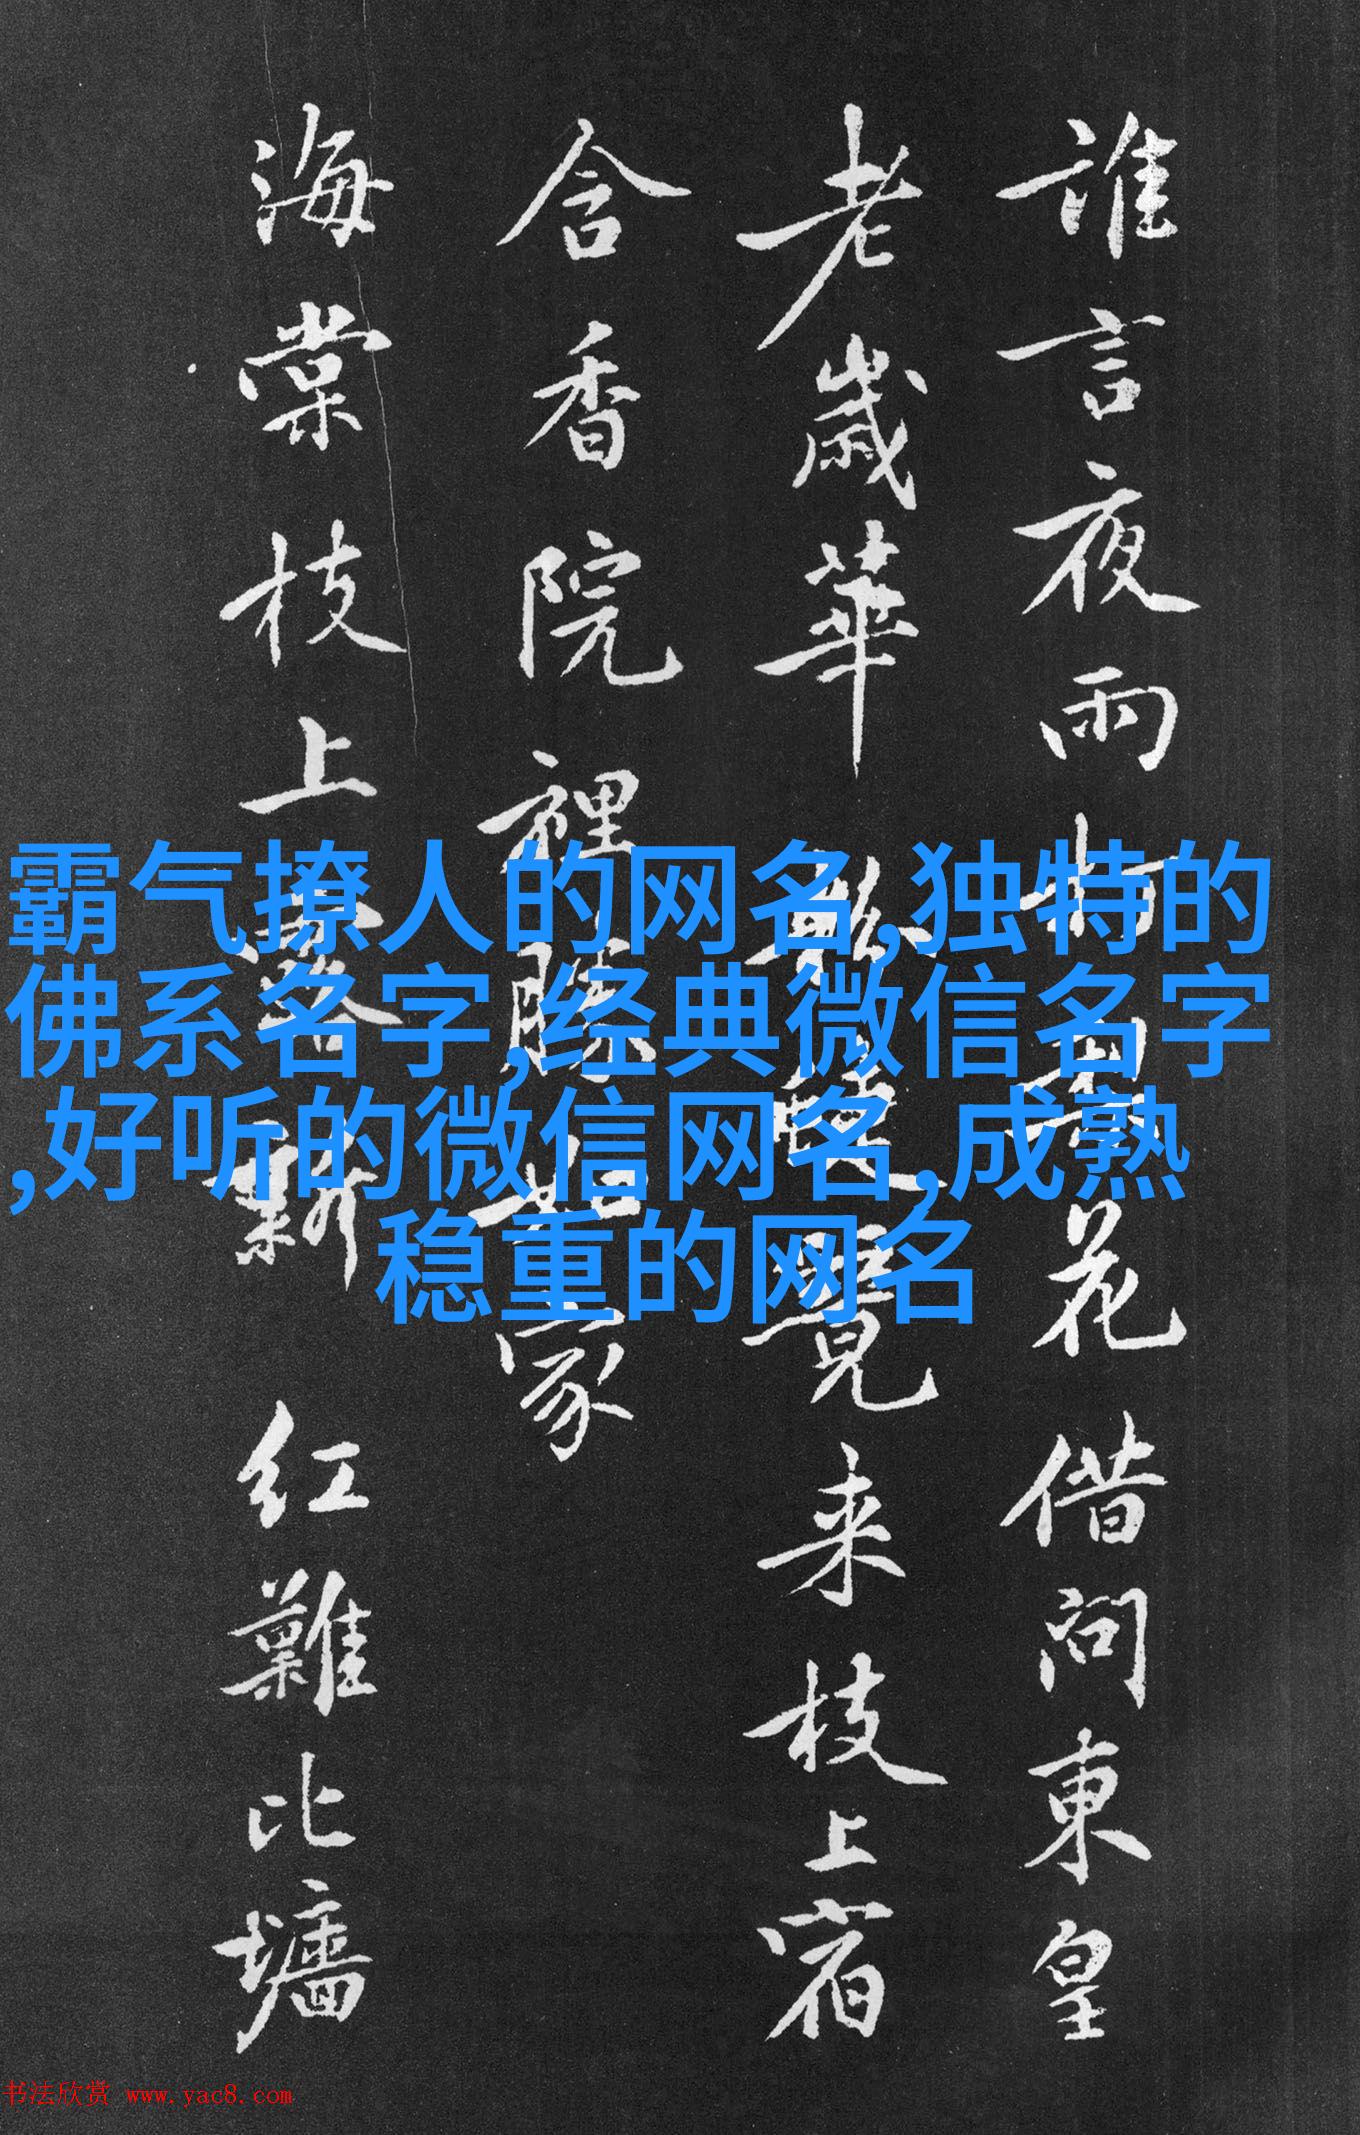 誰言夜雨花借問東皇
老歲華来枝上宿
含香院裡家
海棠枝上红難比墻
霸气撩人的网名,独特的
佛系名字,经典微信名字
,好听的微信网名,成熟
稳重的网名
书法欣赏 www.yac8.com